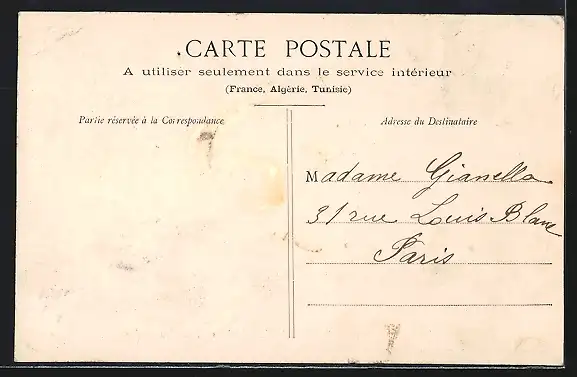 CARTE POSTALE
A utiliser seulement dans le service intérieur
(France, Algérie, Tunisie)
Partie réservée à la Correspondance
Adresse du Destinataire
Madame Gianella
31 rue Louis Blanc
Paris